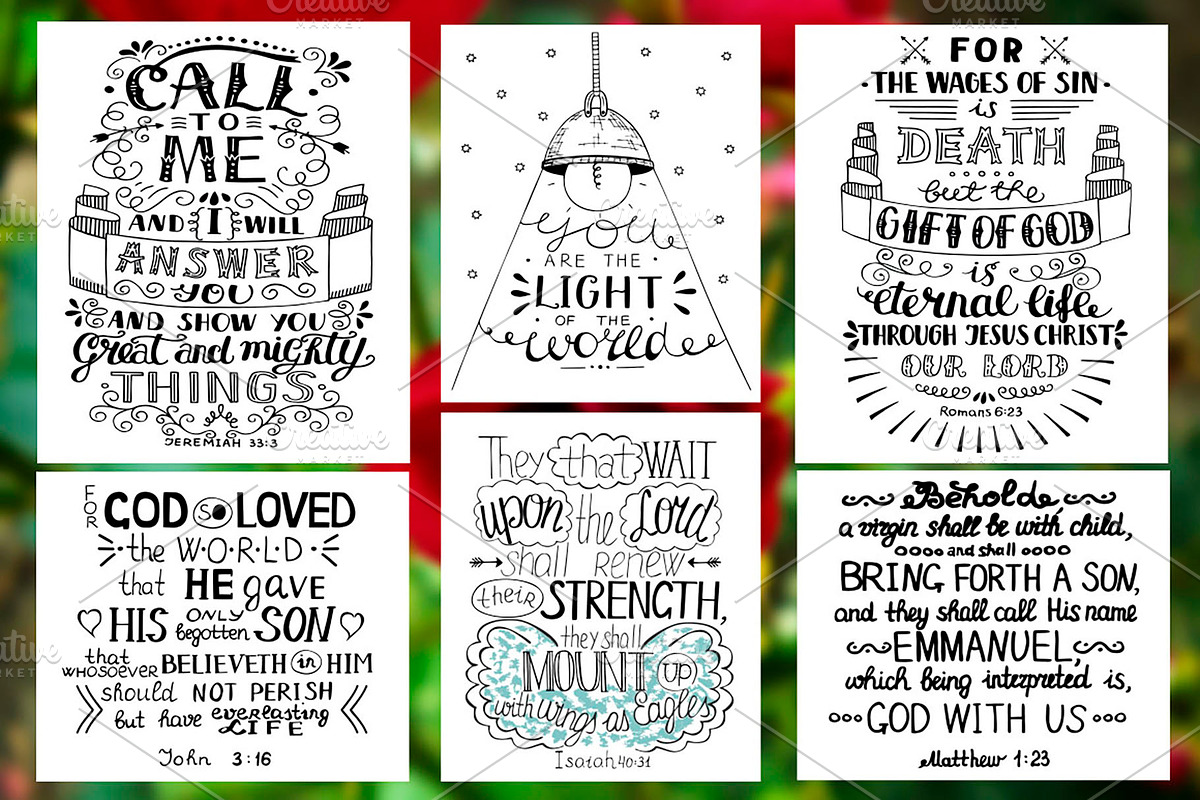 CALL
TO
ME
AND I WILL
ANSWER
YOU
AND SHOW YOU
Great and mighty
THINGS
JEREMIAH 33:3
you
ARE THE
LIGHT
OF THE
world
FOR
THE WAGES OF SIN
is
DEATH
but the
GIFT OF GOD
is
eternal life
THROUGH JESUS CHRIST
OUR LORD
Romans 6:23
FOR GOD so LOVED
the W·O·R·L·D
that HE gave
HIS ONLY begotten SON
that whosoever BELIEVETH in HIM
should NOT PERISH
but have everlasting
LIFE
John 3:16
They that WAIT
upon the Lord
shall RENEW
their STRENGTH,
they shall
MOUNT UP
with wings as Eagles
Isaiah 40:31
Beholde,
a virgin shall be with child,
and shall
BRING FORTH A SON,
and they shall call His name
EMMANUEL,
which being interpreted is,
GOD WITH US
Matthew 1:23
Creative
MARKET